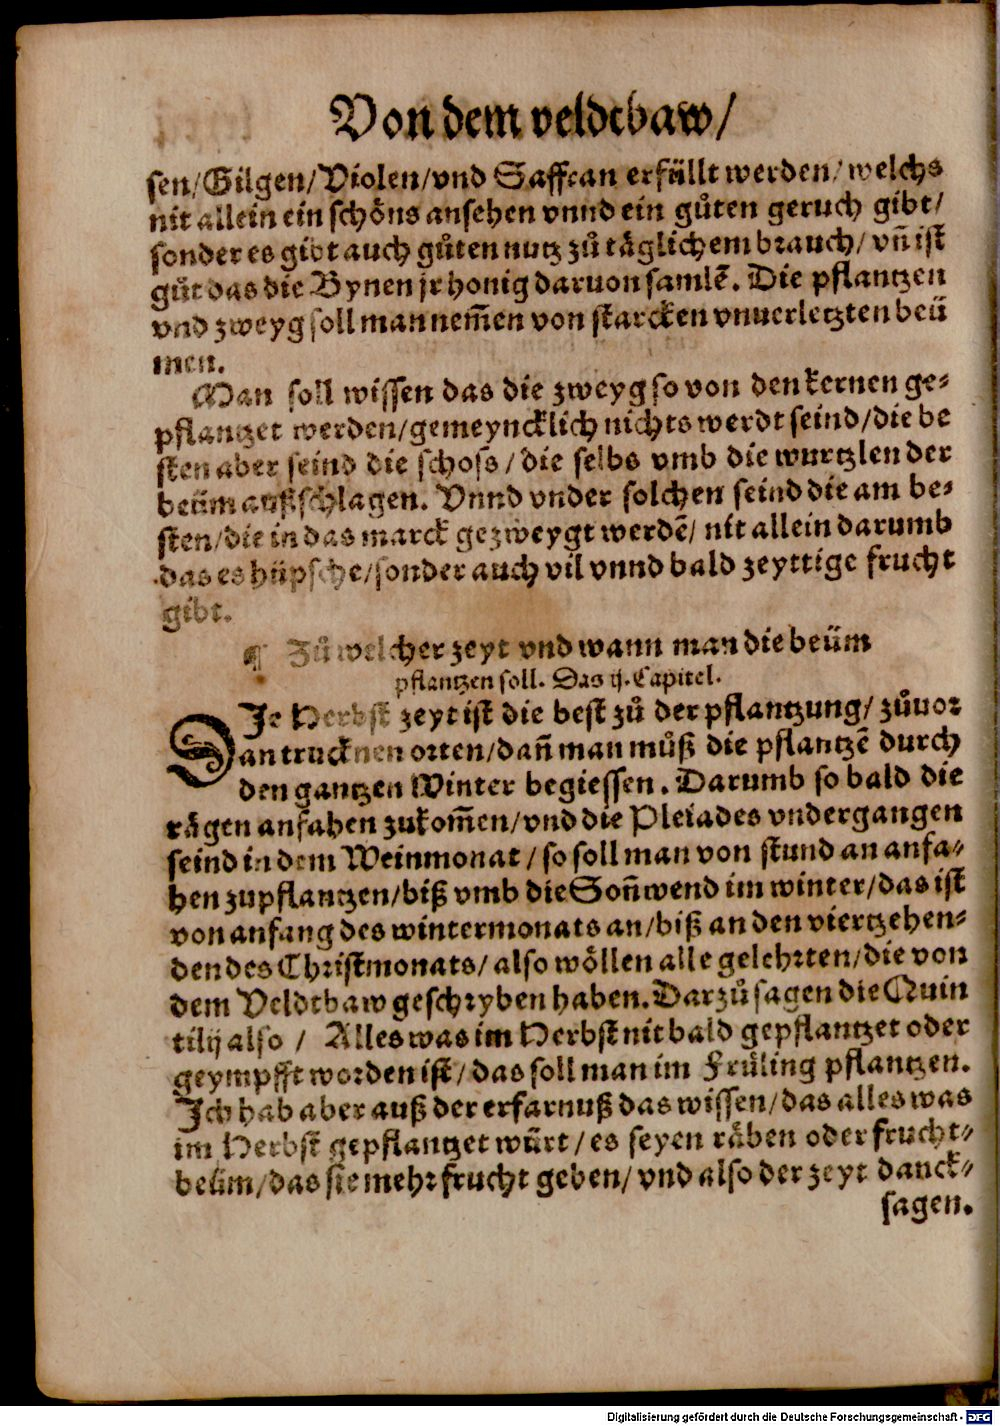 Von dem veldtbaw/
sen/Gilgen/Violen/vnd Saffran erfüllt werden/welchs
nit allein ein schöns ansehen vnnd ein gůten geruch gibt/
sonder es gibt auch gůten nutz zů täglichem brauch/ vñ ist
gůt das die Bynen jr honig daruon samlẽ. Die pflantzen
vnd zweyg soll man nem̃en von starcken vnuerletzten beü
men.
Man soll wissen das die zweyg so von den kernen ge-
pflantzet werden/gemeyncklich nichts werdt seind/die be
sten aber seind die schoss/die selbs vmb die wurtzlen der
beüm außschlagen. Vnnd vnder solchen seind die am be-
sten/die in das marck gezweygt werdẽ/ nit allein darumb
das es hüpsche/sonder auch vil vnnd bald zeyttige frucht
gibt.
¶ Zů welcher zeyt vnd wann man die beüm
pflantzen soll. Das ij. Capitel.
DIe Herbst zeyt ist die best zů der pflantzung/ zůuor
an trucknen orten/dañ man můß die pflantzẽ durch
den gantzen Winter begiessen. Darumb so bald die
rägen anfahen zukom̃en/vnd die Pleiades vndergangen
seind in dem Weinmonat/so soll man von stund an anfa-
hen zupflantzen/biß vmb die Soñwend im winter/das ist
von anfang des wintermonats an/biß an den viertzehen-
den des Christmonats/ also wöllen alle gelehrten/die von
dem Veldtbaw geschryben haben. Darzů sagen die Quin
tilij also / Alles was im Herbst nit bald gepflantzet oder
geympfft worden ist/das soll man im Früling pflantzen.
Ich hab aber auß der erfarnuß das wissen/das alles was
im Herbst gepflantzet würt/es seyen räben oder frucht-
beüm/das sie mehr frucht geben/ vnd also der zeyt danck-
sagen.
Digitalisierung gefördert durch die Deutsche Forschungsgemeinschaft - DFG